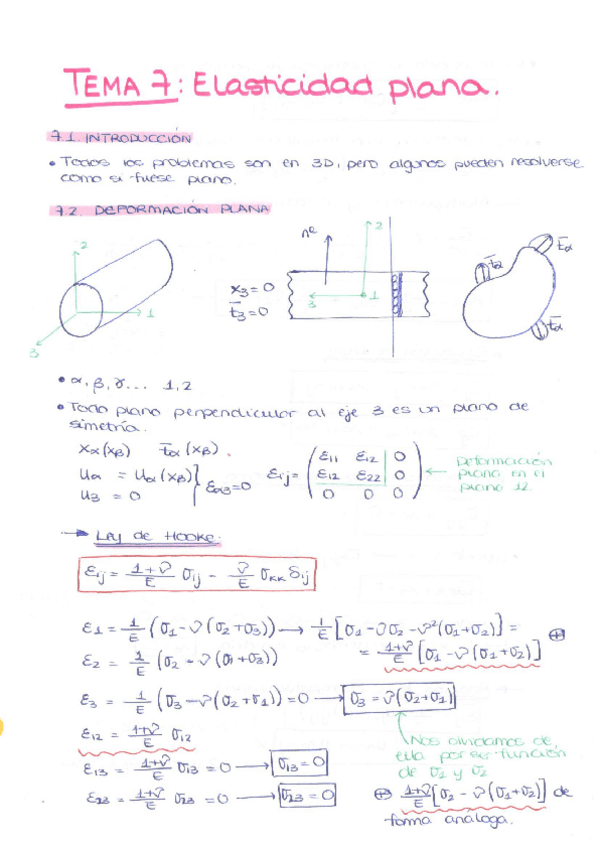 TEMA 7: Elasticidad plana.
7.1. INTRODUCCIÓN
• Todos los problemas son en 3D, pero algunos pueden resolverse
como si fuese plano.
7.2. DEFORMACIÓN PLANA
2
1
3
X₃ = 0
t̅₃ = 0
nº
2
3
1
t̅α
t̅α
t̅α
• α, β, γ... 1,2
• Todo plano perpendicular al eje 3 es un plano de
simetría.
Xα(xβ) t̅α(xβ).
uα = uα(xβ)
u₃ = 0
} εα3 = 0
εij = ( ε11 ε12 0
ε12 ε22 0
0 0 0 )
← Deformación
plana en el
plano 12.
→ Ley de Hooke:
εij = (1+ν)/E σij - ν/E σkk δij
ε1 = 1/E (σ1 - ν(σ2+σ3)) → 1/E [σ1 - νσ2 - ν²(σ1+σ2)] =
= (1+ν)/E [σ1 - ν(σ1+σ2)] ⊕
ε2 = 1/E (σ2 - ν(σ1+σ3))
ε3 = 1/E (σ3 - ν(σ2+σ1)) = 0 → σ3 = ν(σ2+σ1)
ε12 = (1+ν)/E σ12
Nos olvidamos de
ella por ser función
de σ1 y σ2
ε13 = (1+ν)/E σ13 = 0 → σ13 = 0
ε23 = (1+ν)/E σ23 = 0 → σ23 = 0
⊕ (1+ν)/E [σ2 - ν(σ1+σ2)] de
forma análoga.